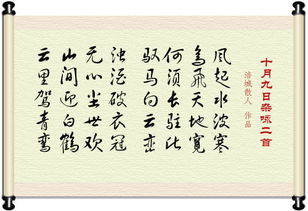 十月九日杂咏二首
涪城散人 作品
风起水波寒
鸟飞天地宽
何须长驻此
驭马向云峦
浊酒破衣冠
无心尘世欢
山间迎白鹤
云里驾青鸾